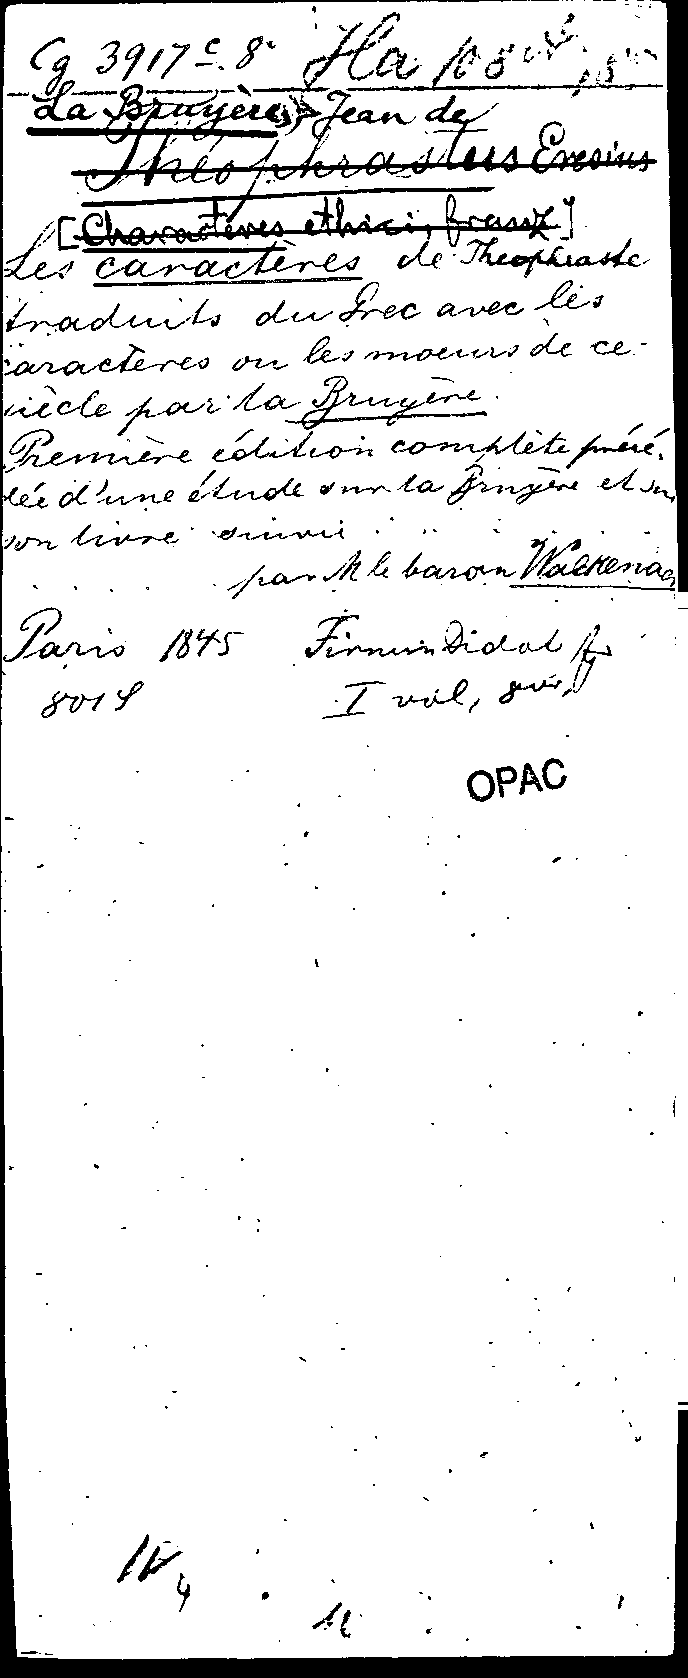 Cg 3917 c. 8° Ha 108
La Bruyère, Jean de
Théophrastus Eresius
[Charactères ethici, franz]
Les caractères de Theophraste
traduits du Grec avec les
caractères ou les moeurs de ce
siècle par la Bruyère.
Première édition complète précé-
dée d'une étude sur la Bruyère et sur
son livre suivie . . . .
. . . . par M le baron Walckenaer
Paris 1845 Firmin Didot fr
I vol, 8vo,
OPAC